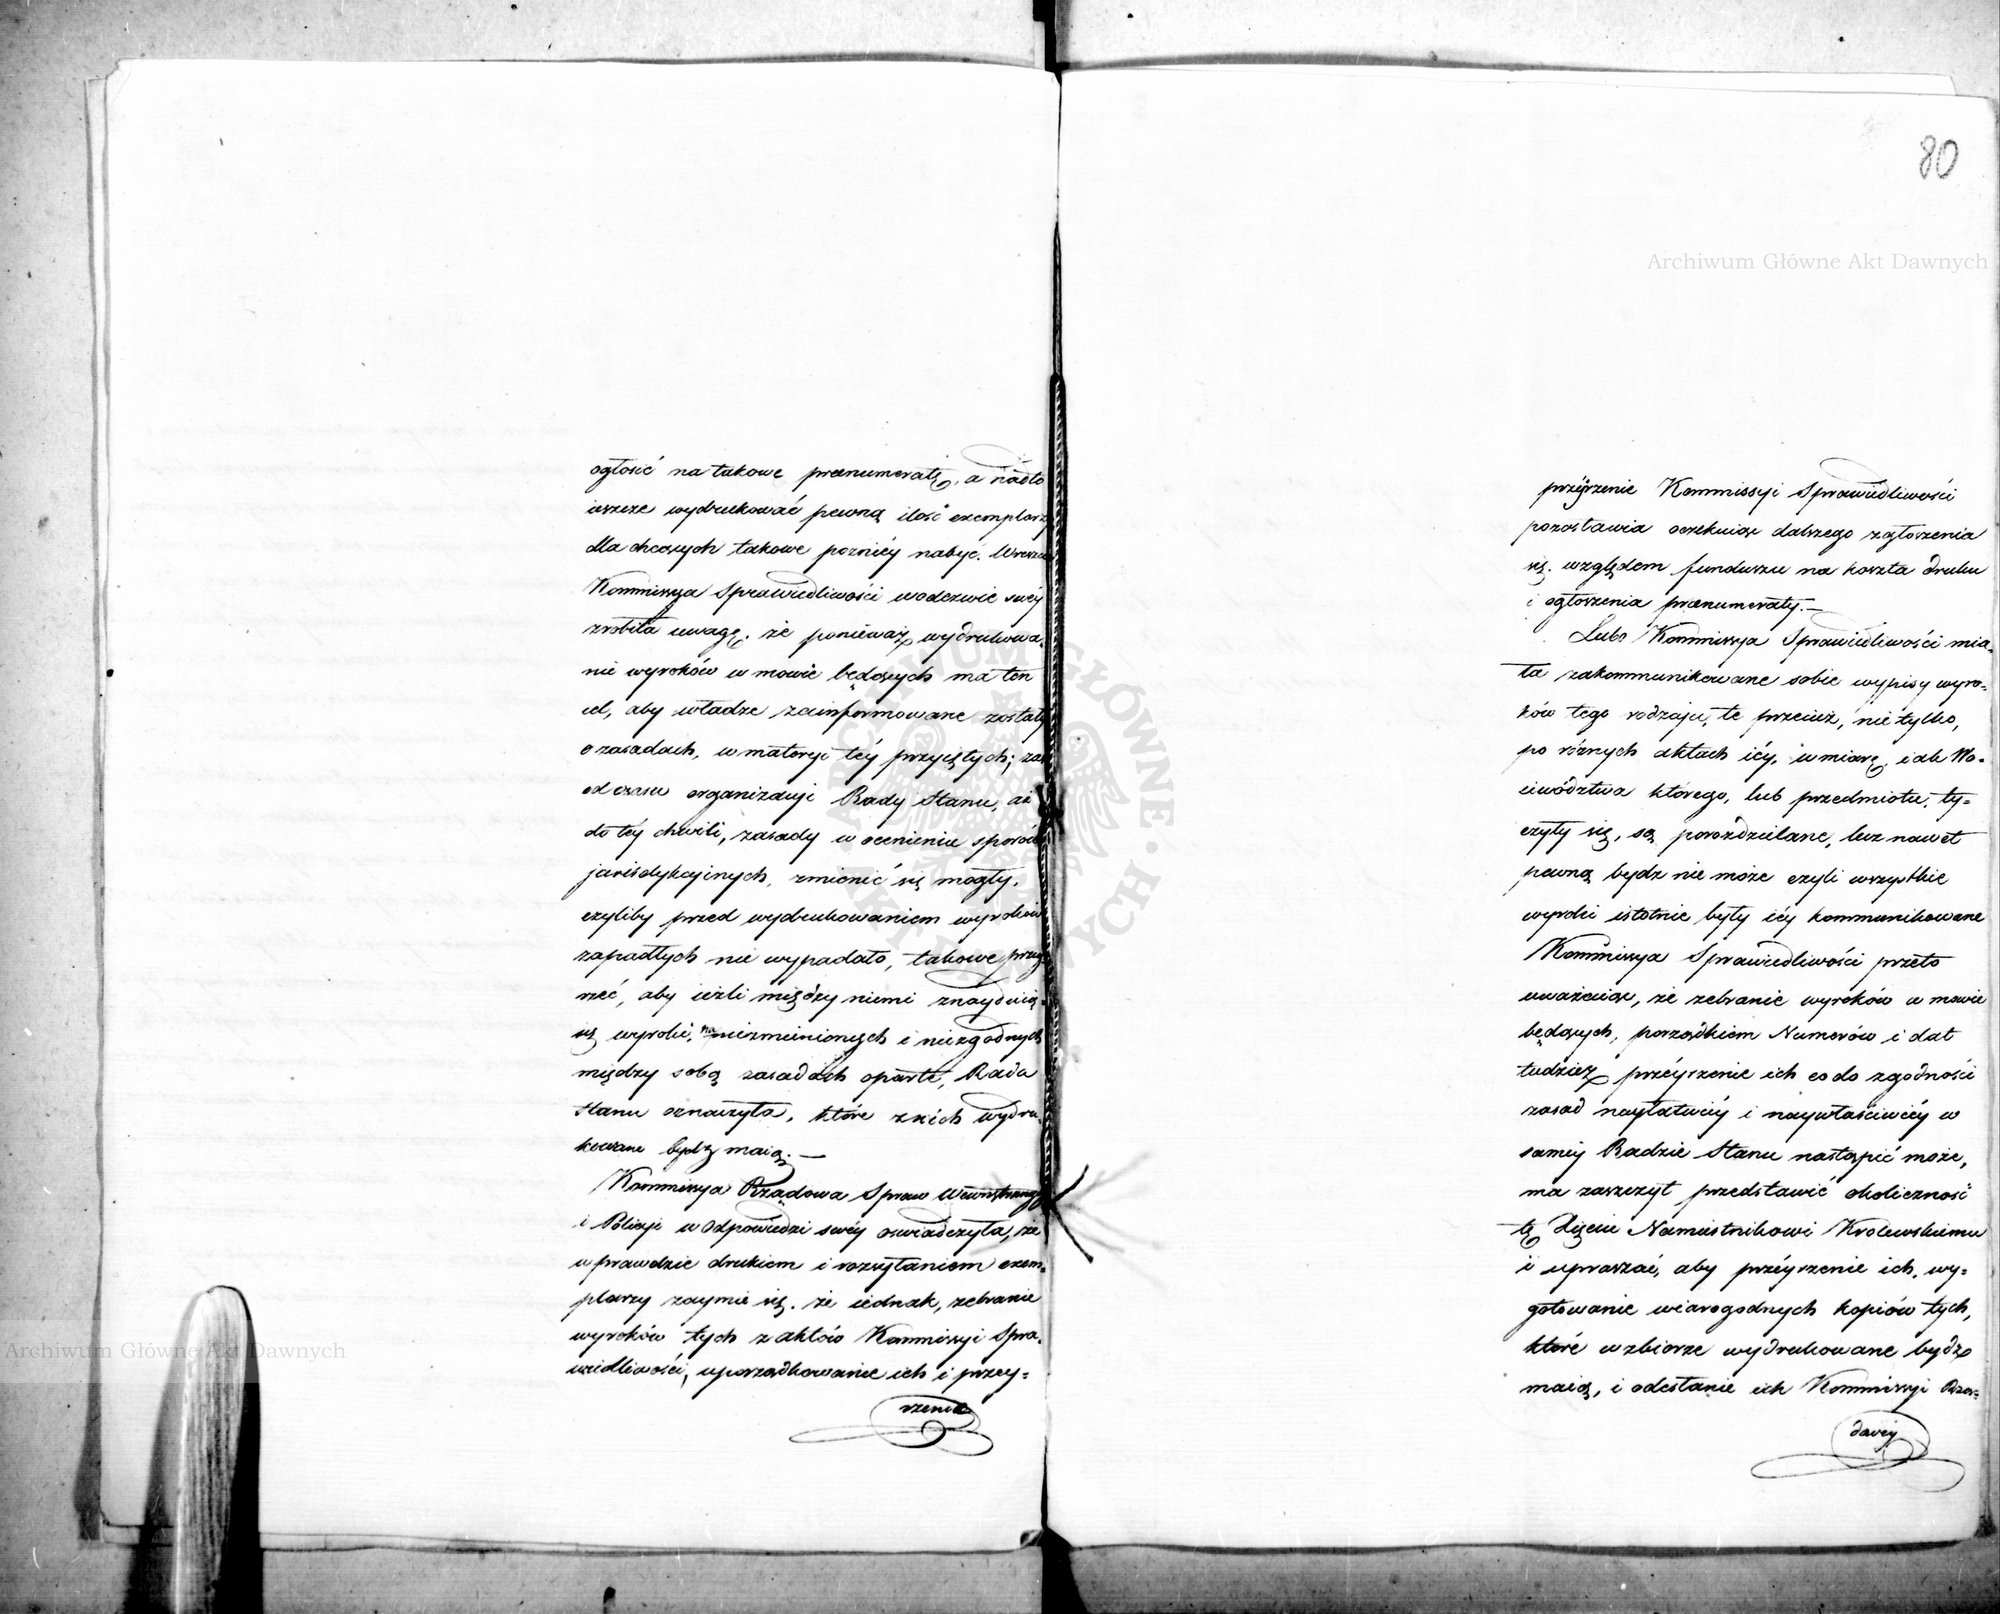 ogłosić na takowe prænumeratę, a nadto
ieszcze wydrukować pewną ilość exemplarzy
dla chcących takowe pozniéy nabyć. Wreszcie
Kommissya Sprawiedliwości w odezwie swéy
zrobiła uwagę, że ponieważ wydrukowa=
nie wyroków w mowie będących ma ten
cel, aby władze zainformowane zostały
o zasadach, w materyi téy przyiętych; zaś
od czasu organizacyi Rady Stanu, aż
do téy chwili, zasady w ocenieniu sporów
jurisdykcyinych, zmienić się mogły,
czyliby przed wydrukowaniem wyroków
zapadłych nie wypadało, takowe przey
rzeć, aby ieżli między niemi znayduią
się wyroki, na niezmienionych i niezgodnych
między sobą zasadach oparte, Rada
Stanu oznaczyła, które z nich wydru=
kowane bydź maią. —
Kommissya Rządowa Spraw Wewnętrznych
i Policyi w odpowiedzi swéy oswiadczyła, że
w prawdzie drukiem i rozsyłaniem exem=
plarzy zaymie się, że iednak, zebranie
wyroków tych z aktów Kommissyi Spra=
wiedliwości, uporządkowanie ich i przey=
rzenie
80
Archiwum Główne Akt Dawnych
przéyrzenie Kommissyi Sprawiedliwości
pozostawia oczekuiąc dalszego zgłoszenia
się, względem funduszu na koszta druku
i ogłoszenia prænumeraty. —
Lubo Kommissya Sprawiedliwości mia=
ła zakommunikowane sobie wypisy wyro=
ków tego rodzaju, te przecież, nie tylko,
po różnych aktach iéy, w miarę, iak Wo=
iewództwa którego, lub przedmiotu, ty=
czyły się, są porozdzielane, lecz nawet
pewną bydź nie może czyli wszystkie
wyroki istotnie były iéy kommunikowane
Kommissya Sprawiedliwości przeto
uważaiąc, że zebranie wyroków w mowie
będących, porządkiem Numerów i dat
tudzież przéyrzenie ich co do zgodności
zasad nayłatwiéy i naywłaściwiéy w
saméy Radzie Stanu nastąpić może,
ma zaszczyt przedstawić okoliczność
tę Xięciu Namiestnikowi Królewskiemu
i upraszać, aby przéyrzenie ich, wy=
gotowanie wiarogodnych kopiów tych,
które w zbiorze wydrukowane bydź
maią, i odesłanie ich Kommissyi Rzą=
dowéy
Archiwum Główne Akt Dawnych
ARCHIWUM GŁÓWNE AKT DAWNYCH